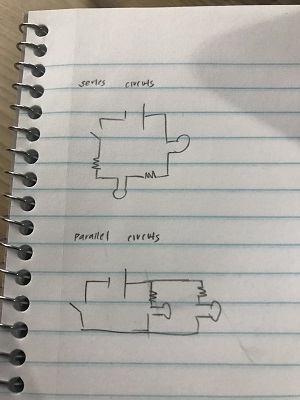 series circuts
parallel circuts